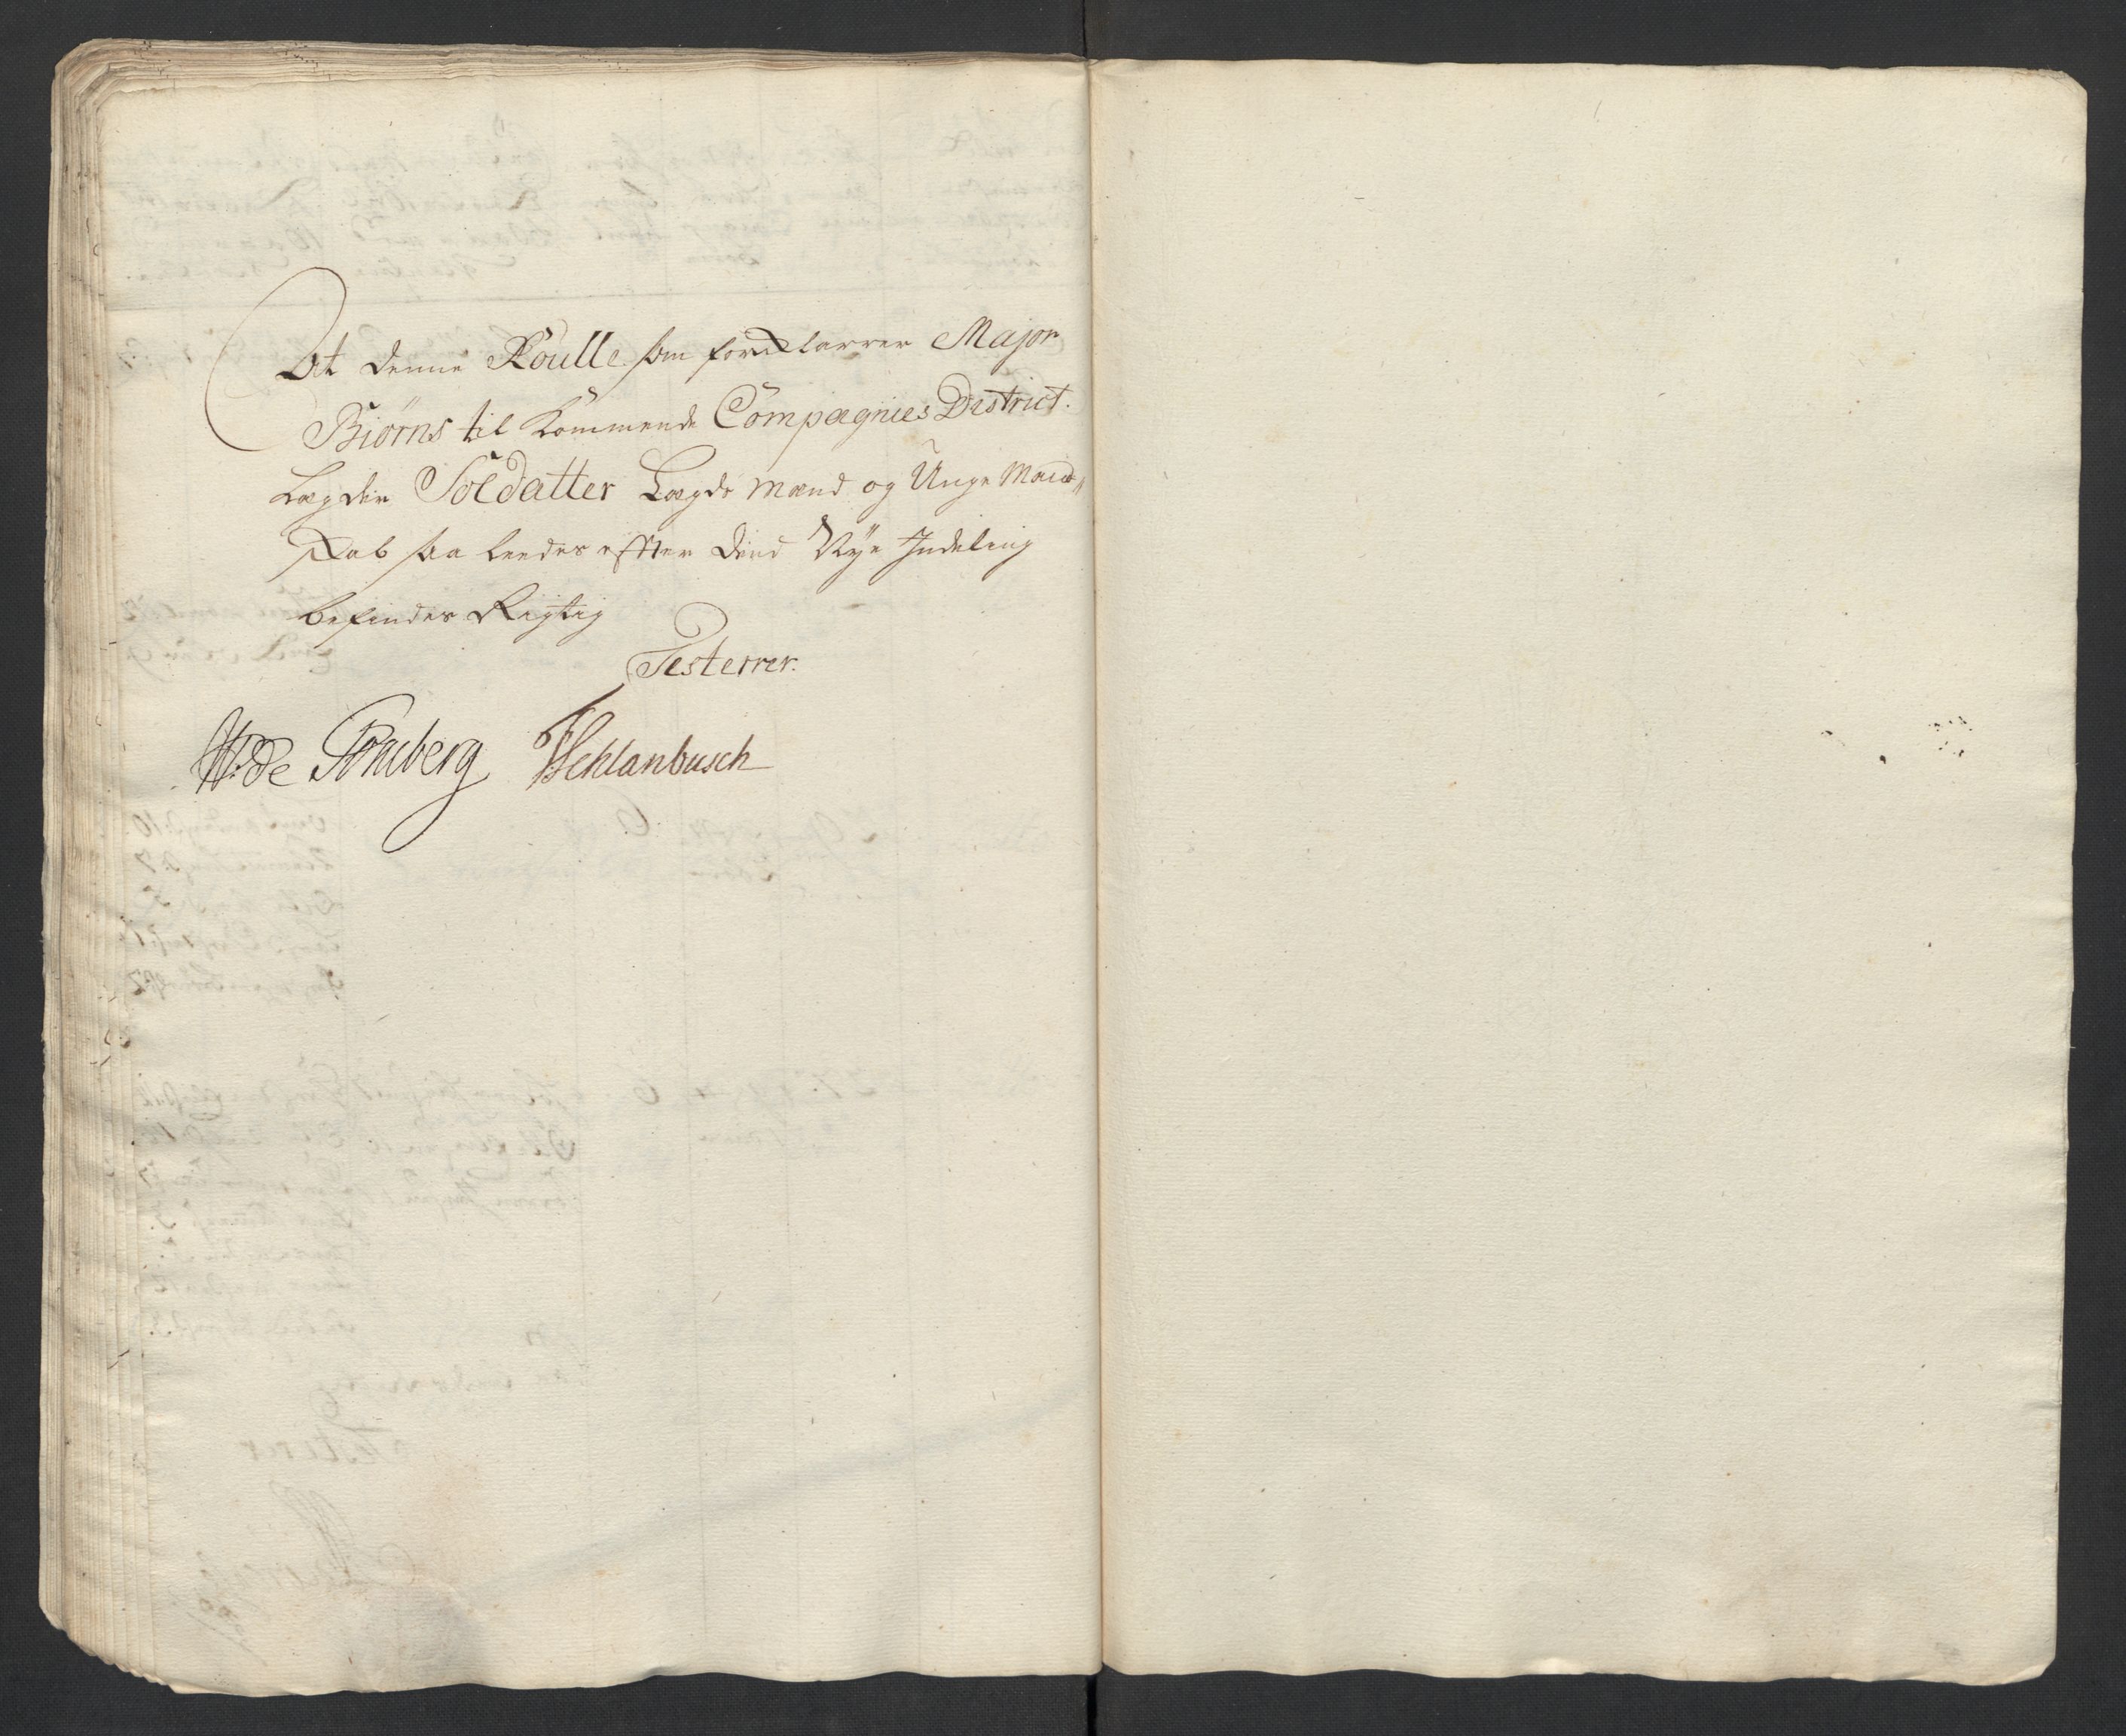 At denne Roulle som forklarrer Major
Biørns til kommende Compagnies District.
Lægder Soldatter Lægds mænd og Unge Mand„
skab saa leedes effter dend Nye Indeling
befindes Rigtig
Testerrer.
de Schlanbusch